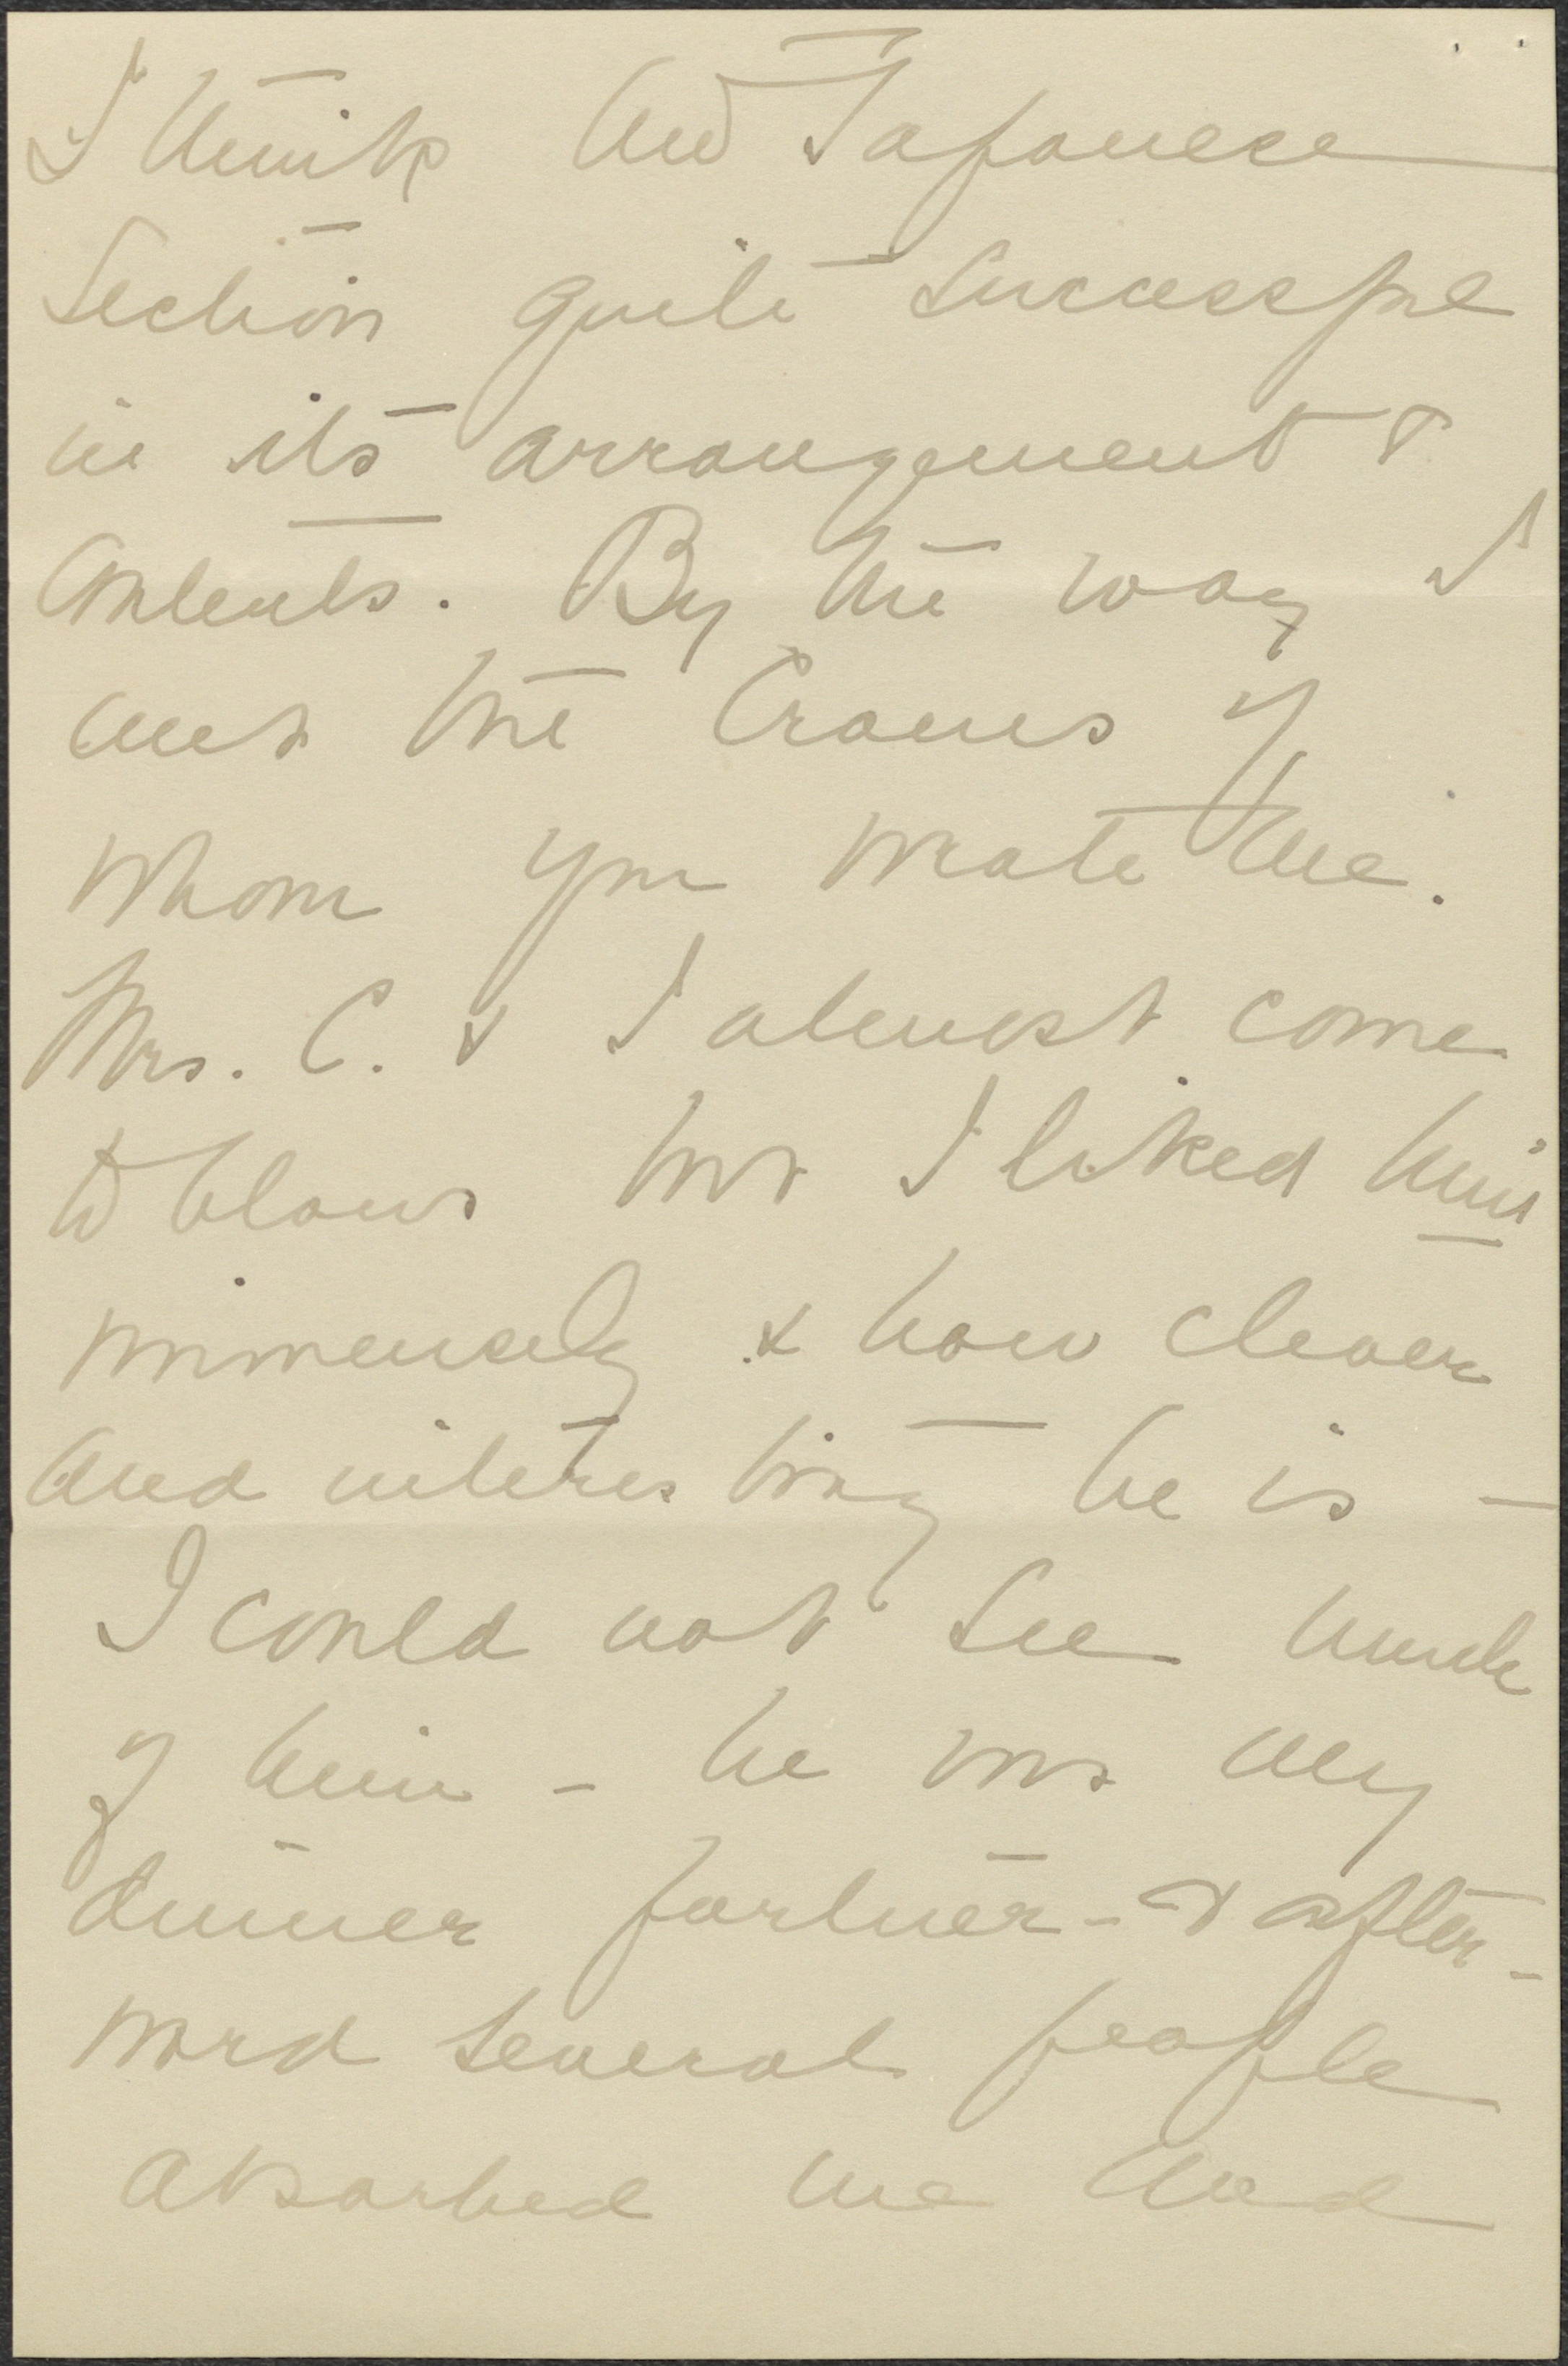 I think the Japanese
Section quite successful
in its arrangement &
contents. By the way I
met the Cranes of
whom you wrote me.
Mrs. C. & I almost come
to blows but I liked him
immensely & how clever
and interesting he is -
I could not see much
of him - he was my
dinner partner - & after-
ward several people
absorbed me and